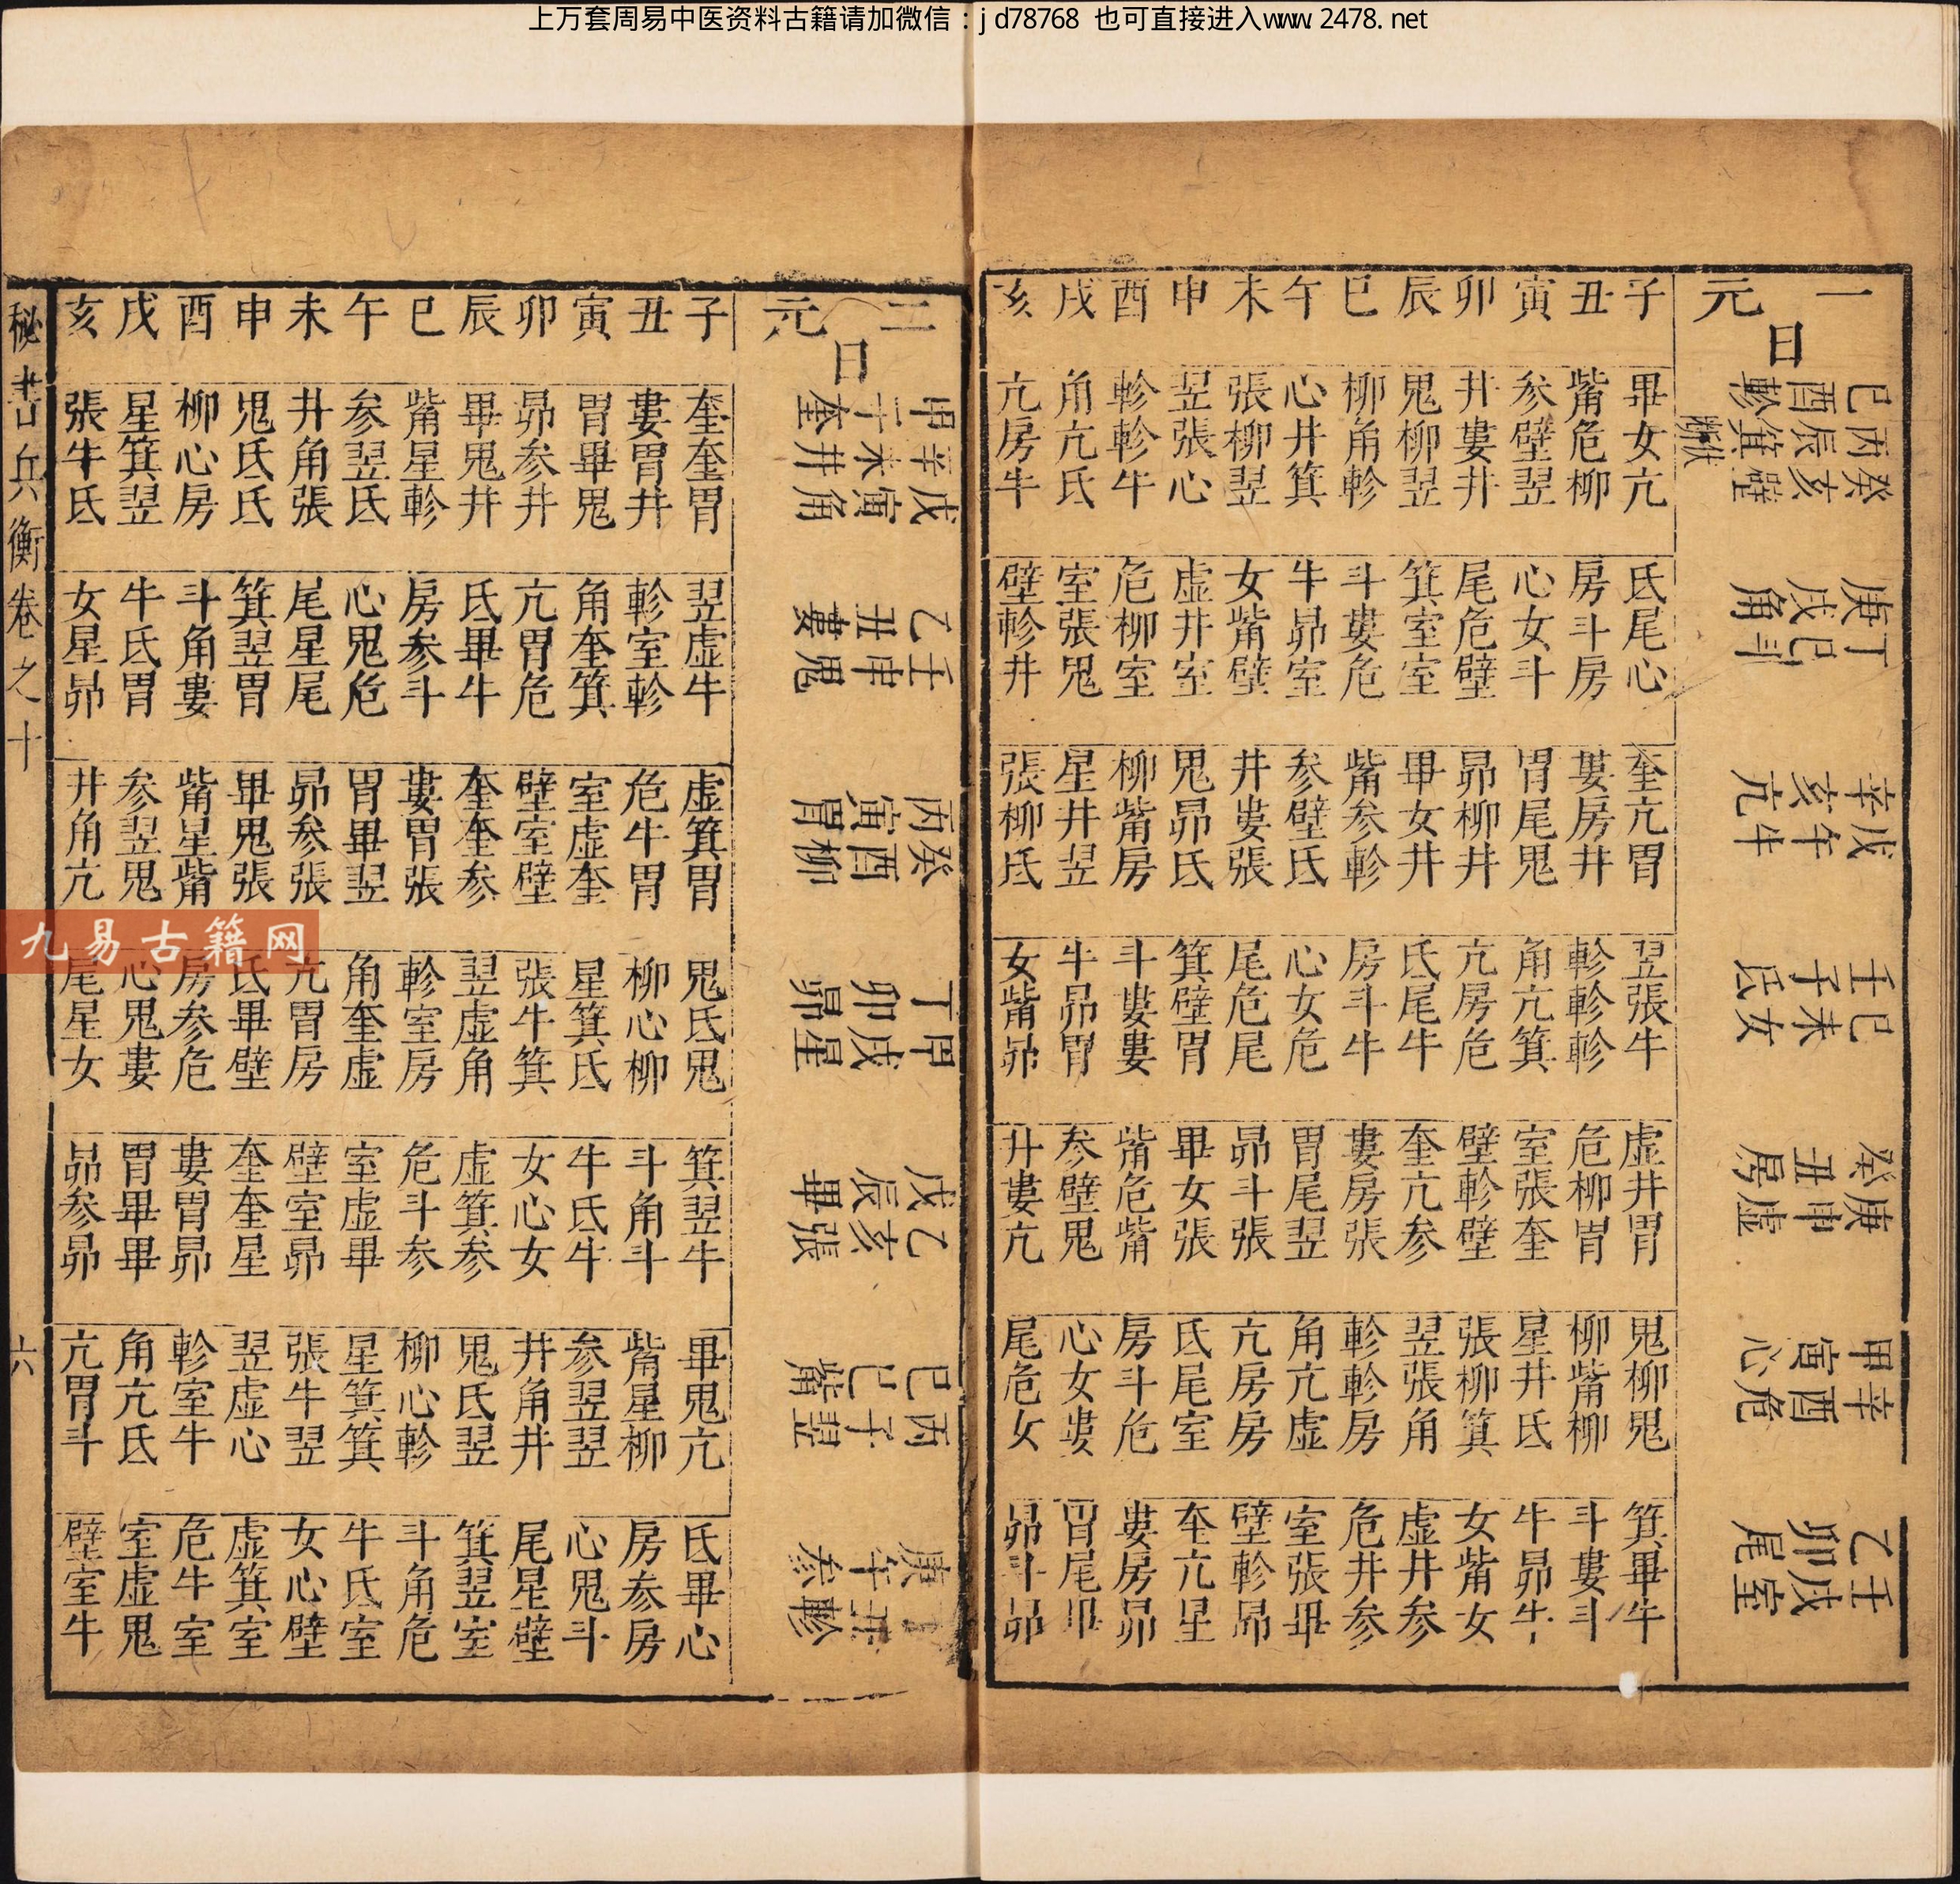 上万套周易中医资料古籍请加微信：jd78768 也可直接进入www.2478.net
一元
日
己酉軫 丙辰箕 癸亥壁
庚戌角 丁巳斗
辛亥亢 戊午牛
壬子氐 己未女
癸丑房 庚申虛
甲寅心 辛酉危
乙卯尾 壬戌室
子 畢女亢 氐尾心 奎亢胃 翌張牛 虛井胃 鬼柳鬼 箕畢牛
丑 觜危柳 房斗房 婁房井 軫軫軫 危柳胃 柳觜柳 斗婁斗
寅 参壁翌 心女斗 胃尾鬼 角亢箕 室張奎 星井氐 牛昴牛
卯 井婁井 尾危壁 昴柳井 亢房危 壁軫壁 張柳箕 女觜女
辰 鬼柳翌 箕室室 畢女井 氐尾牛 奎亢参 翌張角 虛井参
巳 柳角軫 斗婁危 觜参軫 房斗牛 婁房張 軫軫房 危井参
午 心井箕 牛昴室 参壁氐 心女危 胃尾翌 角亢虛 室張畢
未 張柳翌 女觜壁 井婁張 尾危尾 昴斗張 亢房房 壁軫昴
申 翌張心 虛井室 鬼昴氐 箕壁胃 畢女張 氐尾室 奎亢星
酉 軫軫牛 危柳室 柳觜房 斗婁婁 觜危觜 房斗危 婁房昴
戌 角亢氐 室張鬼 星井翌 牛昴胃 参壁鬼 心女婁 胃尾畢
亥 亢房牛 壁軫井 張柳氐 女觜昴 井婁亢 尾危女 昴斗昴
二元
日
甲子奎 辛未井 戊寅角
乙丑婁 壬申鬼
丙寅胃 癸酉柳
丁卯昴 甲戌星
戊辰畢 乙亥張
己巳觜 丙子翌
庚午参 丁丑軫
子 奎奎胃 翌虛牛 虛箕胃 鬼氐鬼 箕翌牛 畢鬼亢 氐畢心
丑 婁胃井 軫室軫 危牛胃 柳心柳 斗角斗 觜星柳 房参房
寅 胃畢鬼 角奎箕 室虛奎 星箕氐 牛氐牛 参翌翌 心鬼斗
卯 昴参井 亢胃危 壁室壁 張牛箕 女心女 井角井 尾星壁
辰 畢鬼井 氐畢牛 奎奎参 翌虛角 虛箕参 鬼氐翌 箕翌室
巳 觜星軫 房参斗 婁胃張 軫室房 危斗参 柳心軫 斗角危
午 参翌氐 心鬼危 胃畢翌 角奎虛 室虛畢 星箕箕 牛氐室
未 井角張 尾星尾 昴参張 亢胃房 壁室昴 張牛翌 女心壁
申 鬼氐氐 箕翌胃 畢鬼張 氐畢壁 奎奎星 翌虛心 虛箕室
酉 柳心房 斗角婁 觜星觜 房参危 婁胃昴 軫室牛 危牛室
戌 星箕翌 牛氐胃 参翌鬼 心鬼婁 胃畢畢 角亢氐 室虛鬼
亥 張牛氐 女星昴 井角亢 尾星女 昴参昴 亢胃斗 壁室牛
秘書兵衡卷之十
六
九易古籍网